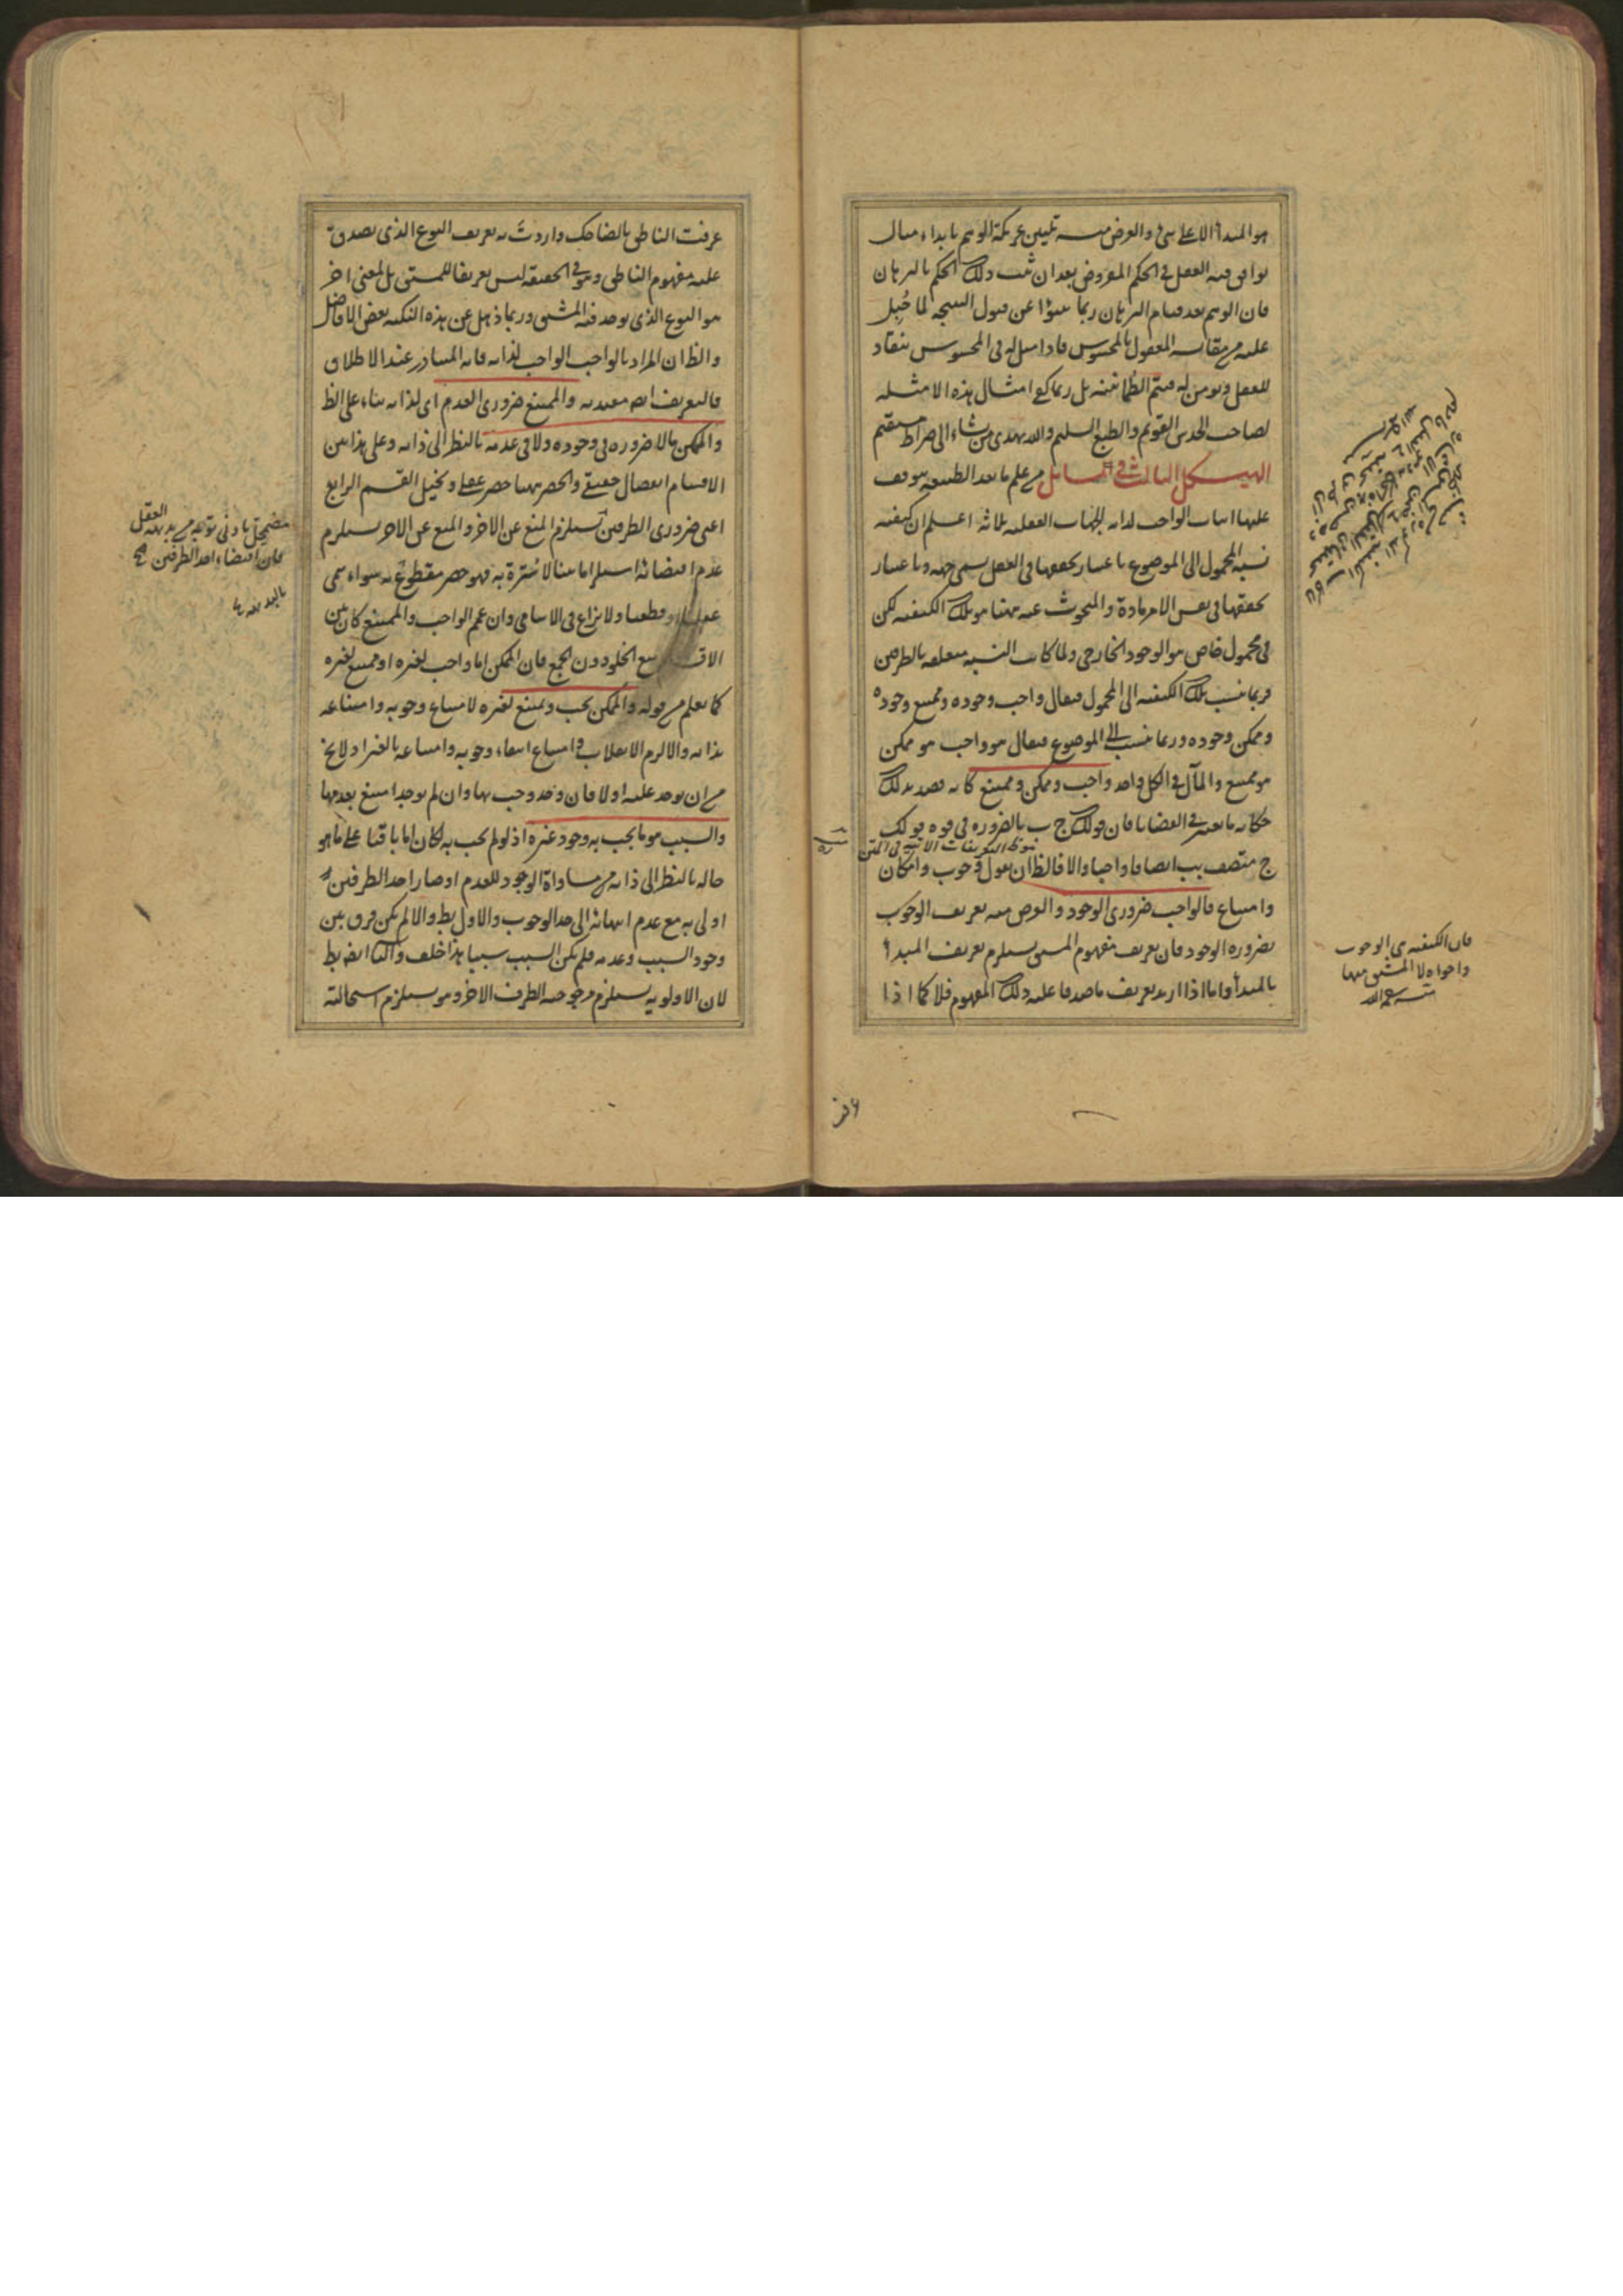 هو المبدأ الاعلى شئ والغرض منه تليين عريكة الوهم بابداء مثال
يوافق فيه العقل في الحكم المفروض بعد ان ثبت ذلك الحكم بالبرهان
فان الوهم بعد قيام البرهان ربما عن قبول النتيجة لما جُبِل
عليه من مقايسة المعقول بالمحسوس فاذا مثل له في المحسوس ينقاد
للعقل ويؤمن له فيتم الطمانينة بل ربما يكفى امثال هذه الامثلة
لصاحب الحدس القويم والطبع السليم والله يهدى من يشاء الى صراط مستقيم
الهيكل الثالث في مسائل من علم ما بعد الطبيعه يتوقف
عليها اثبات الواجب لذاته الجهات العقليه ثلاثة اعلم ان كيفية
نسبة المحمول الى الموضوع باعتبار تحققها في العقل يسمى جهة وباعتبار
تحققها في نفس الامر مادة والمبحوث عنه ههنا هو تلك الكيفيه لكن
في محمول خاص هو الوجود الخارجى ولما كانت النسبه متعلقه بالطرفين
فربما ينسب تلك الكيفيه الى المحمول فيقال واجب وجوده وممتنع وجوده
وممكن وجوده وربما ينسب الى الموضوع فيقال هو واجب هو ممكن
هو ممتنع والمآل في الكل واحد واجب وممكن وممتنع كانه قصد بذلك
حكاية ما يعتبر في القضايا فان قولك ج ب بالضروره في قوة قولك
ج متصف بب اتصافا واجبا والا فالظ ان يقول وجوب وامكان
وامتناع فالواجب ضرورى الوجود والغرض منه تعريف الوجوب
بضرورة الوجود فان تعريف مفهوم المشتق يستلزم تعريف المبدأ
بالمبدأ واما اذا اريد تعريف ما صدقا عليه ذلك المفهوم فلا كما اذا
فان الكيفيه هى الوجوب
واخواه لا المشتق منها
منه رحمه الله
عرفت الناطق بالضاحك واردت به تعريف النوع الذى يصدق
عليه مفهوم الناطق وهو في الحقيقه ليس تعريفا للمشتق بل لمعنى اخر
هو النوع الذى يوجد فيه المشتق وربما ذهل عن هذه النكتة بعض الافاضل
والظ ان المراد بالواجب الواجب لذاته فانه المتبادر عند الاطلاق
فالتعريف ايضا مقيد به والممتنع ضرورى العدم اى لذاته بناء على الظ
والممكن ما لا ضروره في وجوده ولا في عدمه بالنظر الى ذاته وعلى هذا بين
الاقسام انفصال حقيقى والحصر ههنا حصر عقلى وتخيل القسم الرابع
اعنى ضرورى الطرفين يستلزم المنع عن الاخر والمنع عن الاخر يستلزم
عدم اقتضائه استلزاما بينا لا سترة به فهو حصر مقطوع به سواء سمى
عقليا او قطعيا ولا نزاع في الاسامى وان عمم الواجب والممتنع كان بين
منع الخلو دون الجمع فان الممكن اما واجب لغيره او ممتنع لغيره
كما يعلم من قوله والممكن يجب ويمتنع لغيره لامتناع وجوبه وامتناعه
بذاته والا لزم الانقلاب وامتناع انتفاء وجوبه وامتناعه بالغير اذ لا يخ
من ان يوجد علته او لا فان وجد وجب بها وان لم يوجد امتنع بعدمها
والسبب هو ما يجب به وجود غيره اذ لو لم يجب به لكان اما باقيا على ما هو
حاله بالنظر الى ذاته من مساواة الوجود للعدم او صار احد الطرفين
اولى به مع عدم انتهائه الى حد الوجوب والاول بط والا لم يكن فرق بين
وجود السبب وعدمه فلم يكن السبب سببا هذا خلف والثانى ايضا بط
لان الاولويه يستلزم مرجوحية الطرف الاخر وهو يستلزم استحالته
مضمحل بادنى توجه من بديهة العقل
فان اقتضاء احد الطرفين